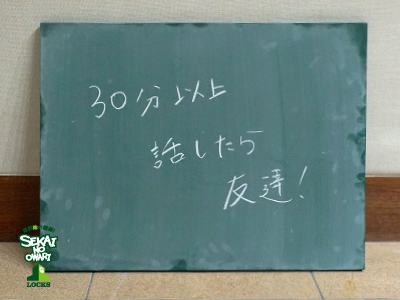 30分以上
話したら
友達!
SEKAI
NO
OWARI
LOCKS